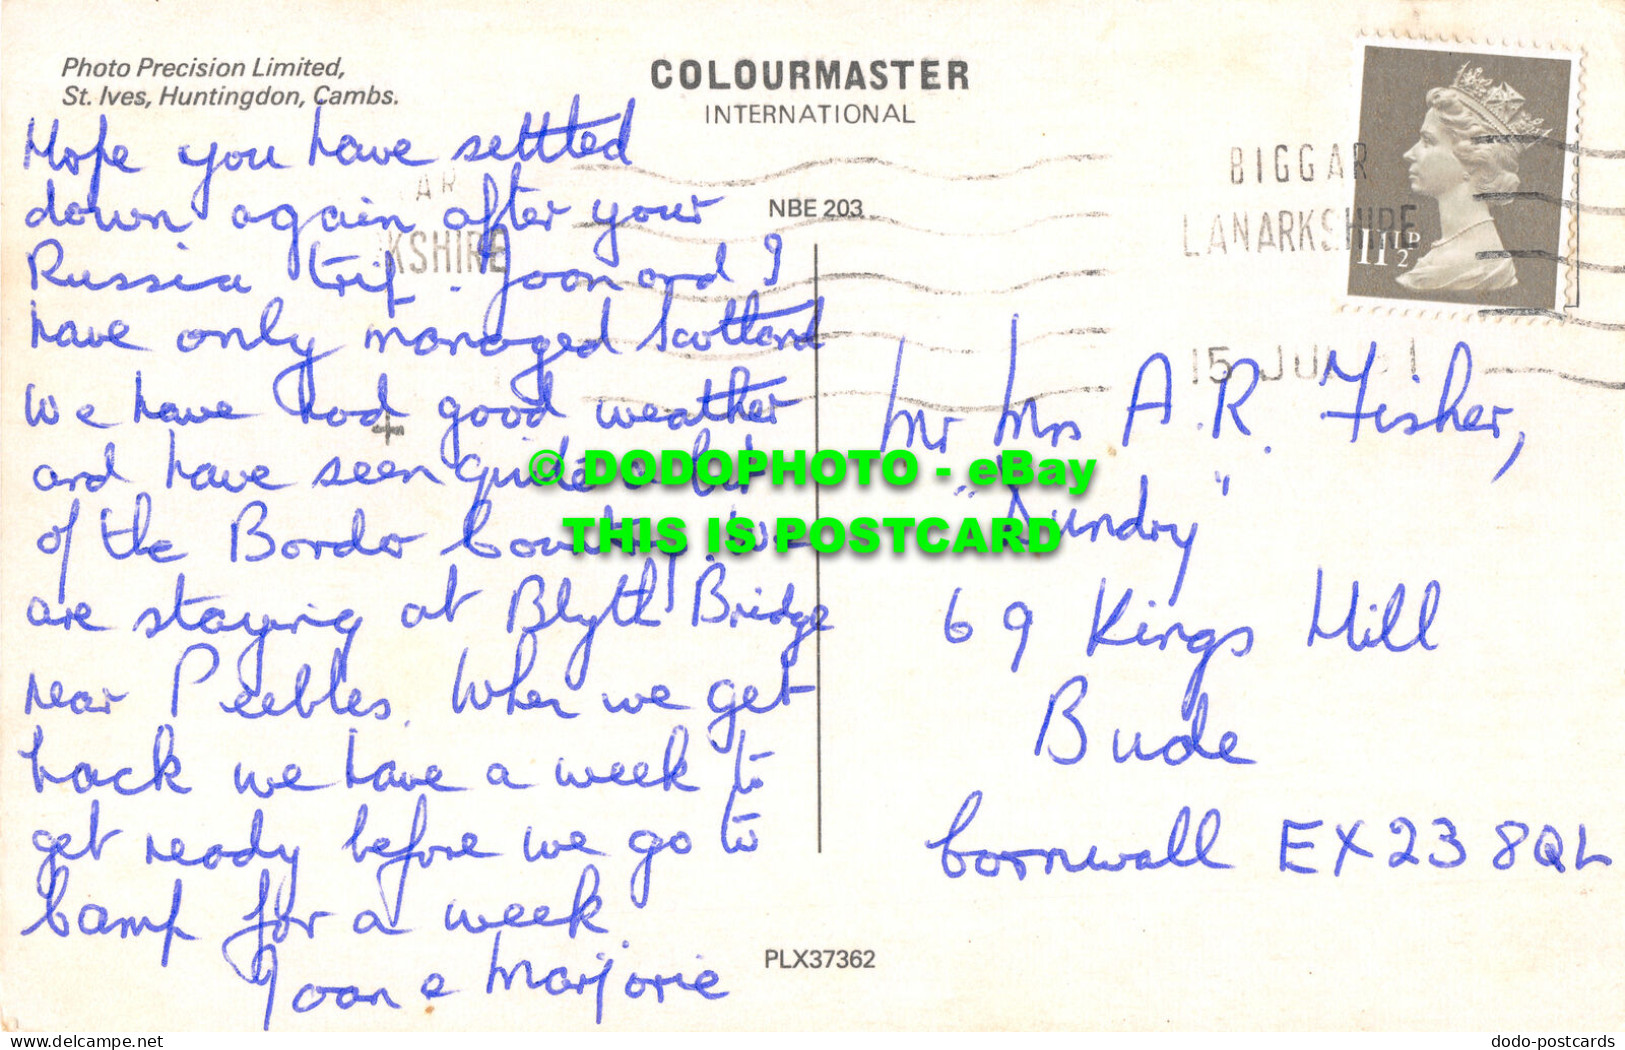 Photo Precision Limited,
St. Ives, Huntingdon, Cambs.
COLOURMASTER
INTERNATIONAL
NBE 203
BIGGAR
LANARKSHIRE
15 JU
11½P
AR
KSHIRE
Hope you have settled
down again after your
Russia trip. Joan and I
have only managed Scotland
We have had good weather
and have seen quite a bit
of the Border Country. We
are staying at Blyth Bridge
near Peebles. When we get
back we have a week to
get ready before we go to
Camp for a week.
Joan & Marjorie
Mr Mrs A.R. Fisher,
"Dundry"
69 Kings Hill
Bude
Cornwall EX23 8QL
PLX37362
© DODOPHOTO - eBay
THIS IS POSTCARD
www.delcampe.net
dodo-postcards